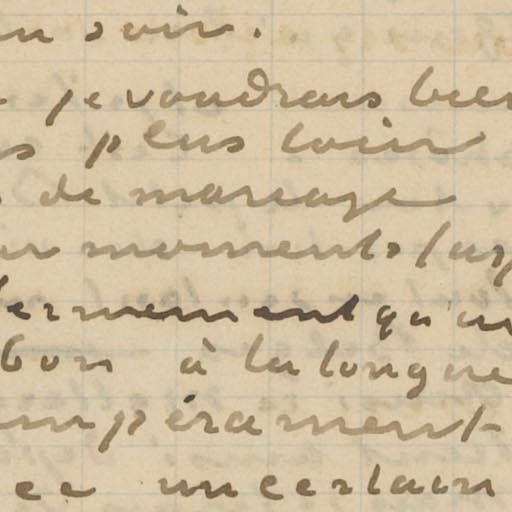 soir.
je voudrais bien
plus loin
de mareage
moments
fermement qu'un
bon à la longue
mpérament
un certain